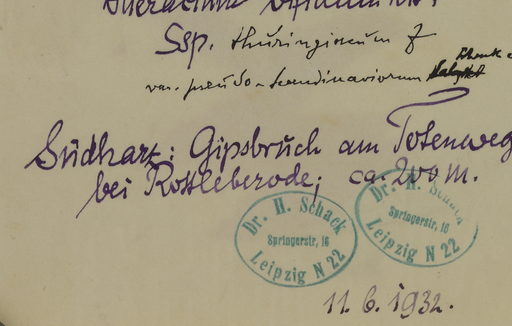 Hieracium bifidum Kit.
Ssp. thuringiacum Z
var. pseudo-scandinaviorum
Südharz: Gipsbruch am Totenweg
bei Rottleberode; ca. 200 m.
Dr. H. Schack
Springerstr. 16
Leipzig N 22
Dr. H. Schack
Springerstr. 16
Leipzig N 22
11.6.1932.